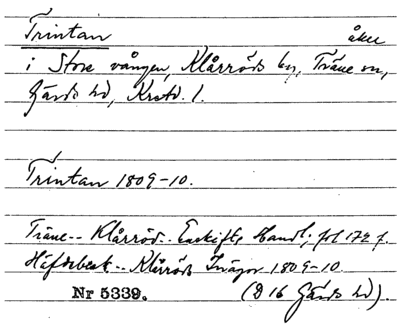 Trintan åker
i Store vången, Klårröds by, Träne sn,
Gärds hd, Krstd. l.
Trintan 1809-10.
Träne-- Klårröd-- Enskifts Handl; fol 172 f.
Häfdebeskr-- Klårröds Inägor 1809-10.
Nr 5339. (D 16 Gärds hd).